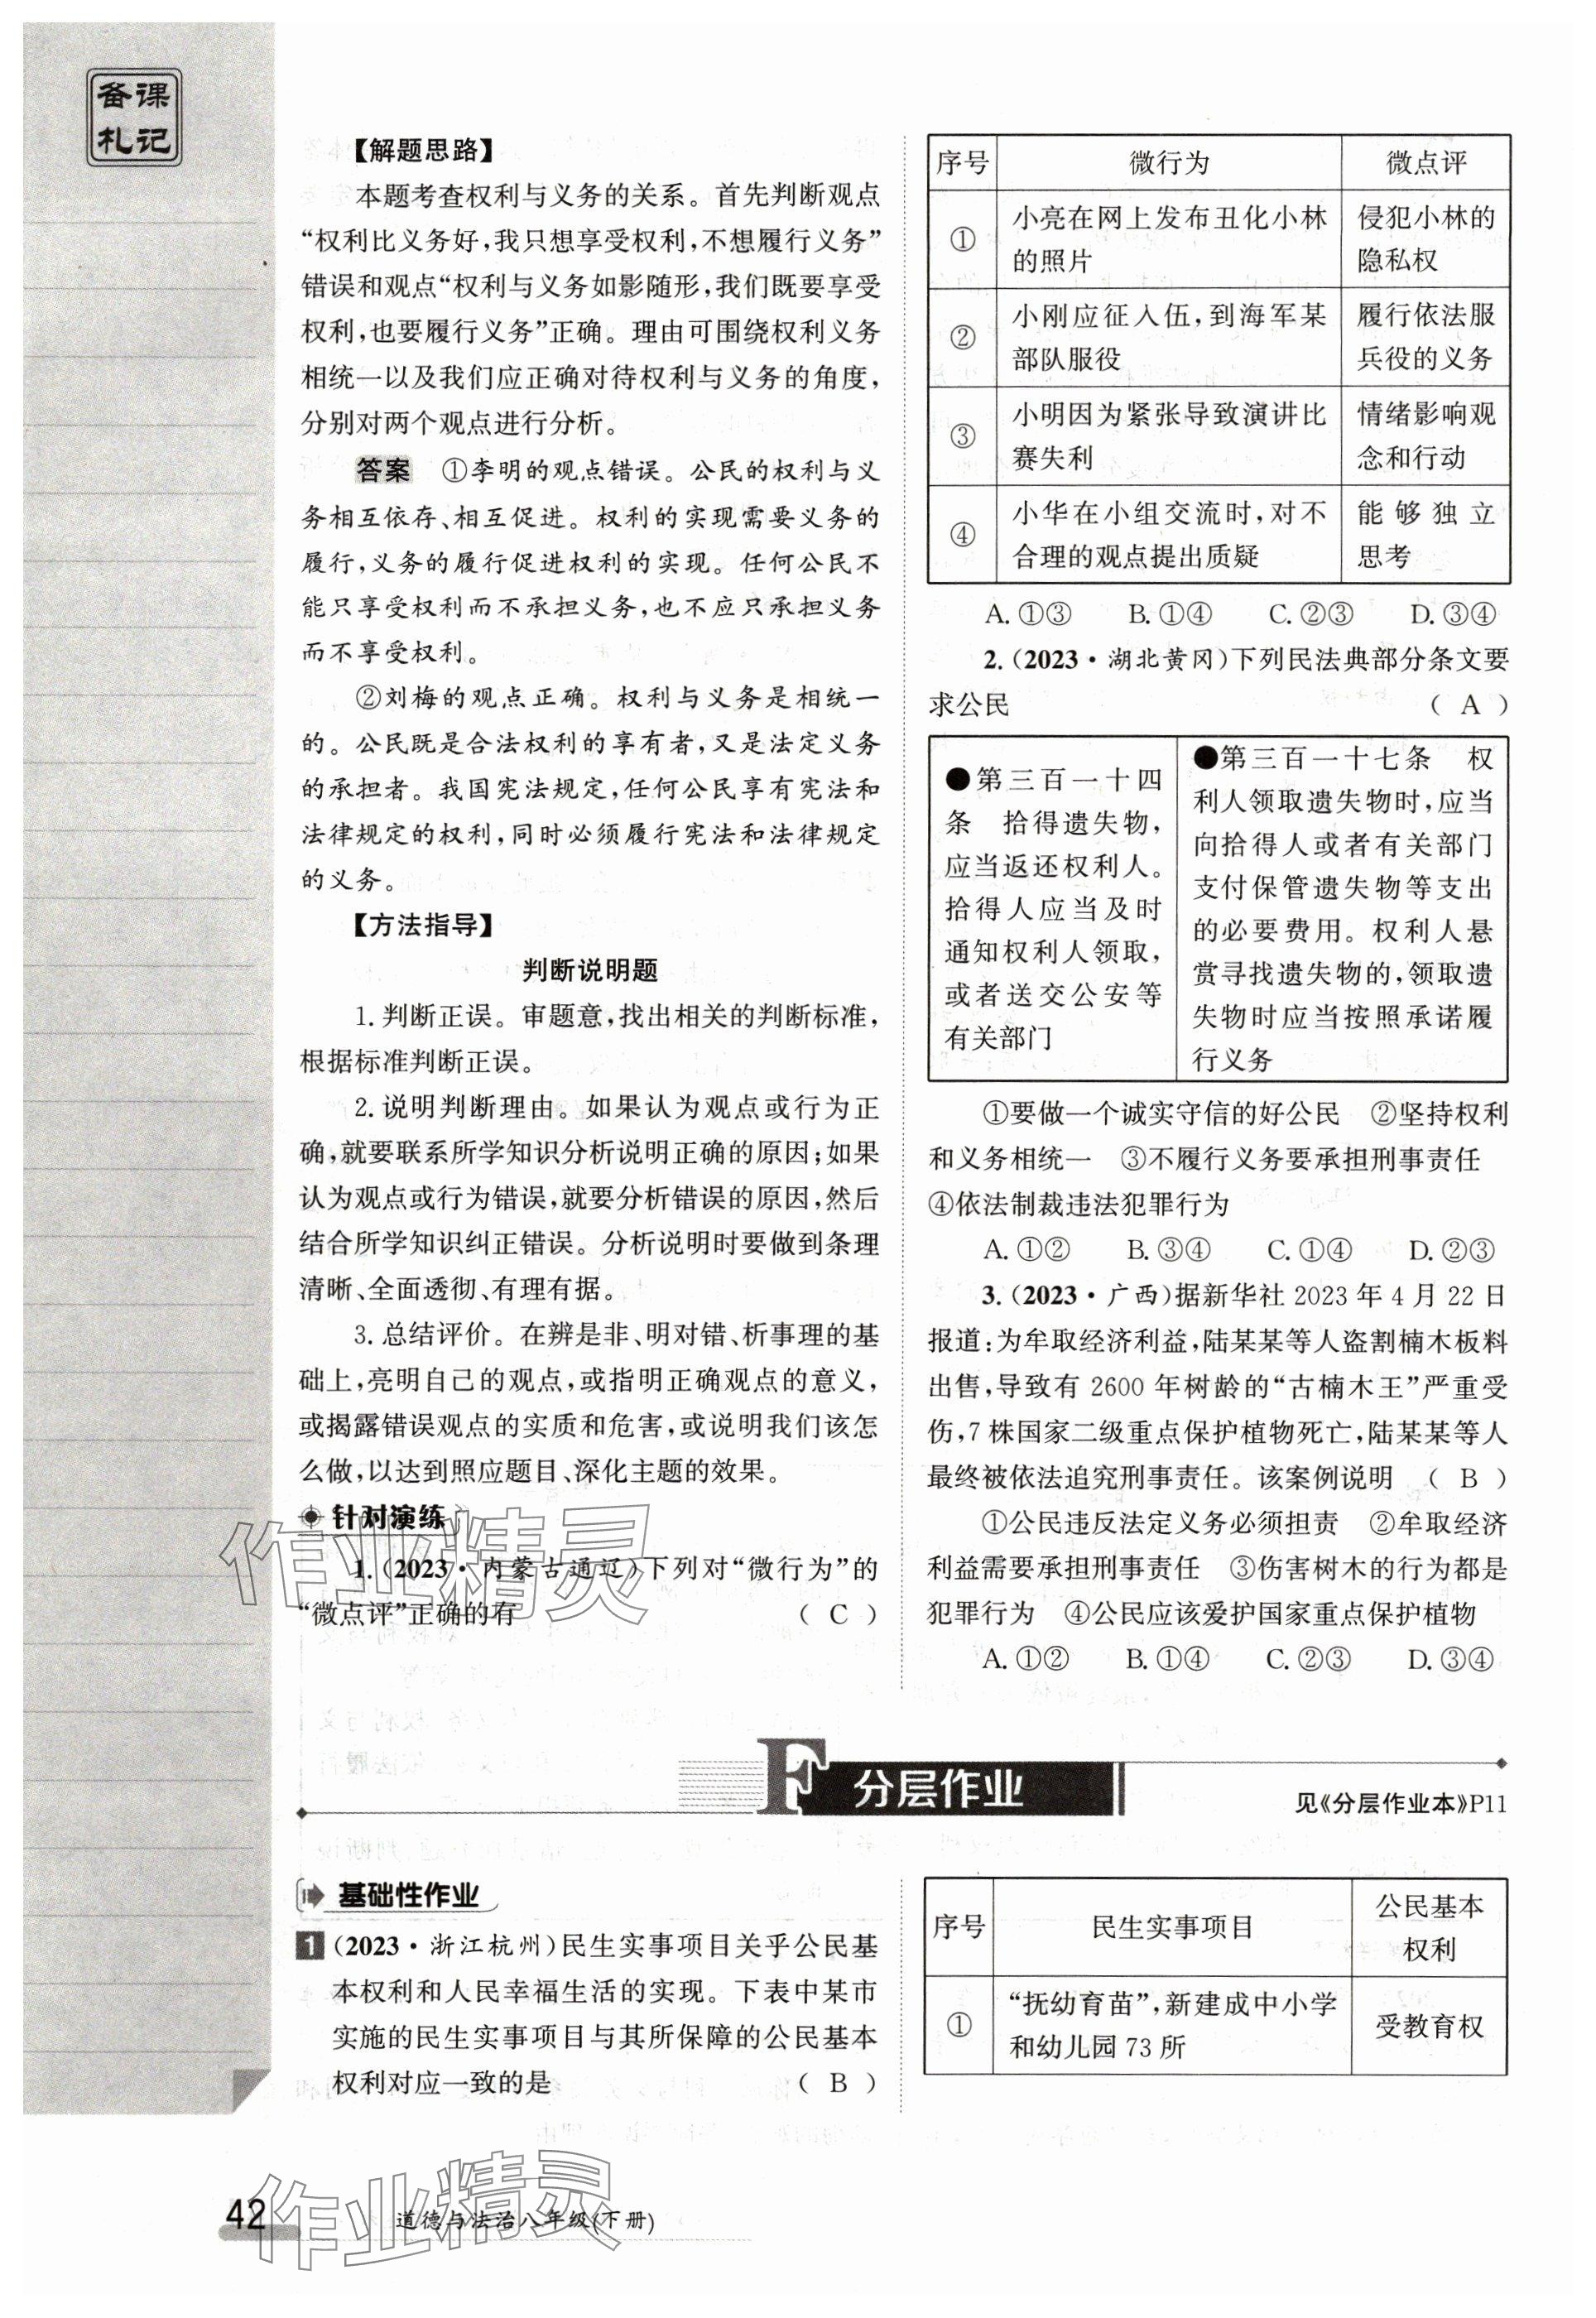 备课
札记
【解题思路】
本题考查权利与义务的关系。首先判断观点
“权利比义务好,我只想享受权利,不想履行义务”
错误和观点“权利与义务如影随形,我们既要享受
权利,也要履行义务”正确。理由可围绕权利义务
相统一以及我们应正确对待权利与义务的角度,
分别对两个观点进行分析。
答案 ①李明的观点错误。公民的权利与义
务相互依存、相互促进。权利的实现需要义务的
履行,义务的履行促进权利的实现。任何公民不
能只享受权利而不承担义务,也不应只承担义务
而不享受权利。
②刘梅的观点正确。权利与义务是相统一
的。公民既是合法权利的享有者,又是法定义务
的承担者。我国宪法规定,任何公民享有宪法和
法律规定的权利,同时必须履行宪法和法律规定
的义务。
【方法指导】
判断说明题
1.判断正误。审题意,找出相关的判断标准,
根据标准判断正误。
2.说明判断理由。如果认为观点或行为正
确,就要联系所学知识分析说明正确的原因;如果
认为观点或行为错误,就要分析错误的原因,然后
结合所学知识纠正错误。分析说明时要做到条理
清晰、全面透彻、有理有据。
3.总结评价。在辨是非、明对错、析事理的基
础上,亮明自己的观点,或指明正确观点的意义,
或揭露错误观点的实质和危害,或说明我们该怎
么做,以达到照应题目、深化主题的效果。
针对演练
1.(2023·内蒙古通辽)下列对“微行为”的
“微点评”正确的有 ( C )
序号 微行为 微点评
① 小亮在网上发布丑化小林 侵犯小林的
的照片 隐私权
② 小刚应征入伍,到海军某 履行依法服
部队服役 兵役的义务
③ 小明因为紧张导致演讲比 情绪影响观
赛失利 念和行动
④ 小华在小组交流时,对不 能够独立
合理的观点提出质疑 思考
A.①③ B.①④ C.②③ D.③④
2.(2023·湖北黄冈)下列民法典部分条文要
求公民 ( A )
●第三百一十四
条 拾得遗失物,
应当返还权利人。
拾得人应当及时
通知权利人领取,
或者送交公安等
有关部门
●第三百一十七条 权
利人领取遗失物时,应当
向拾得人或者有关部门
支付保管遗失物等支出
的必要费用。权利人悬
赏寻找遗失物的,领取遗
失物时应当按照承诺履
行义务
①要做一个诚实守信的好公民 ②坚持权利
和义务相统一 ③不履行义务要承担刑事责任
④依法制裁违法犯罪行为
A.①② B.③④ C.①④ D.②③
3.(2023·广西)据新华社 2023 年 4 月 22 日
报道:为牟取经济利益,陆某某等人盗割楠木板料
出售,导致有 2600 年树龄的“古楠木王”严重受
伤,7 株国家二级重点保护植物死亡,陆某某等人
最终被依法追究刑事责任。该案例说明 ( B )
①公民违反法定义务必须担责 ②牟取经济
利益需要承担刑事责任 ③伤害树木的行为都是
犯罪行为 ④公民应该爱护国家重点保护植物
A.①② B.①④ C.②③ D.③④
F 分层作业
见《分层作业本》P11
基础性作业
1 (2023·浙江杭州)民生实事项目关乎公民基
本权利和人民幸福生活的实现。下表中某市
实施的民生实事项目与其所保障的公民基本
权利对应一致的是 ( B )
序号 民生实事项目 公民基本
权利
① “抚幼育苗”,新建成中小学 受教育权
和幼儿园 73 所
作业精灵
作业精灵
42 道德与法治八年级(下册)